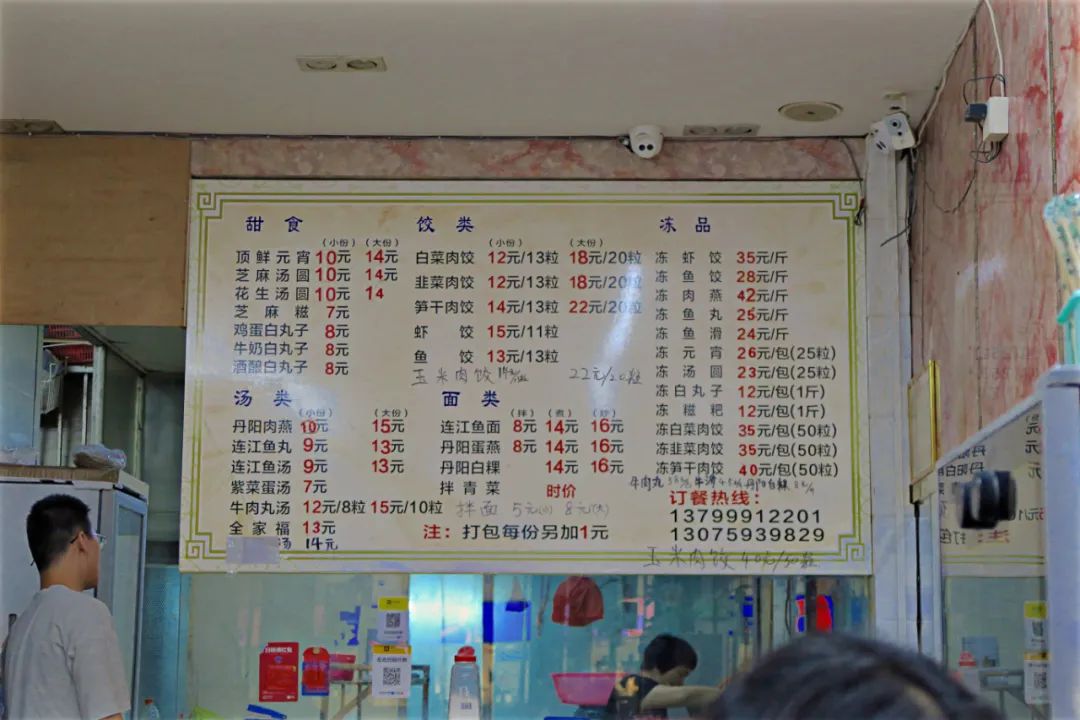 甜食
（小份）（大份）
顶鲜元宵 10元 14元
芝麻汤圆 10元 14元
花生汤圆 10元 14
芝麻糍 7元
鸡蛋白丸子 8元
牛奶白丸子 8元
酒酿白丸子 8元
饺类
（小份）（大份）
白菜肉饺 12元/13粒 18元/20粒
韭菜肉饺 12元/13粒 18元/20粒
笋干肉饺 14元/13粒 22元/20粒
虾饺 15元/11粒
鱼饺 13元/13粒
玉米肉饺 22元/20粒
冻品
冻虾饺 35元/斤
冻鱼饺 28元/斤
冻肉燕 42元/斤
冻鱼丸 25元/斤
冻鱼滑 24元/斤
冻元宵 26元/包(25粒)
冻汤圆 23元/包(25粒)
冻白丸子 12元/包(1斤)
冻糍粑 12元/包(1斤)
冻白菜肉饺 35元/包(50粒)
冻韭菜肉饺 35元/包(50粒)
冻笋干肉饺 40元/包(50粒)
汤类
（小份）（大份）
丹阳肉燕 10元 15元
连江鱼丸 9元 13元
连江鱼汤 9元 13元
紫菜蛋汤 7元
牛肉丸汤 12元/8粒 15元/10粒
全家福 13元
汤 14元
面类
（拌）（煮）（炒）
连江鱼面 8元 14元 16元
丹阳蛋燕 8元 14元 16元
丹阳白粿 14元 16元
拌青菜 时价
拌面 5元(小) 8元(大)
注：打包每份另加1元
牛肉丸
订餐热线：
13799912201
13075939829
玉米肉饺 40元/50粒